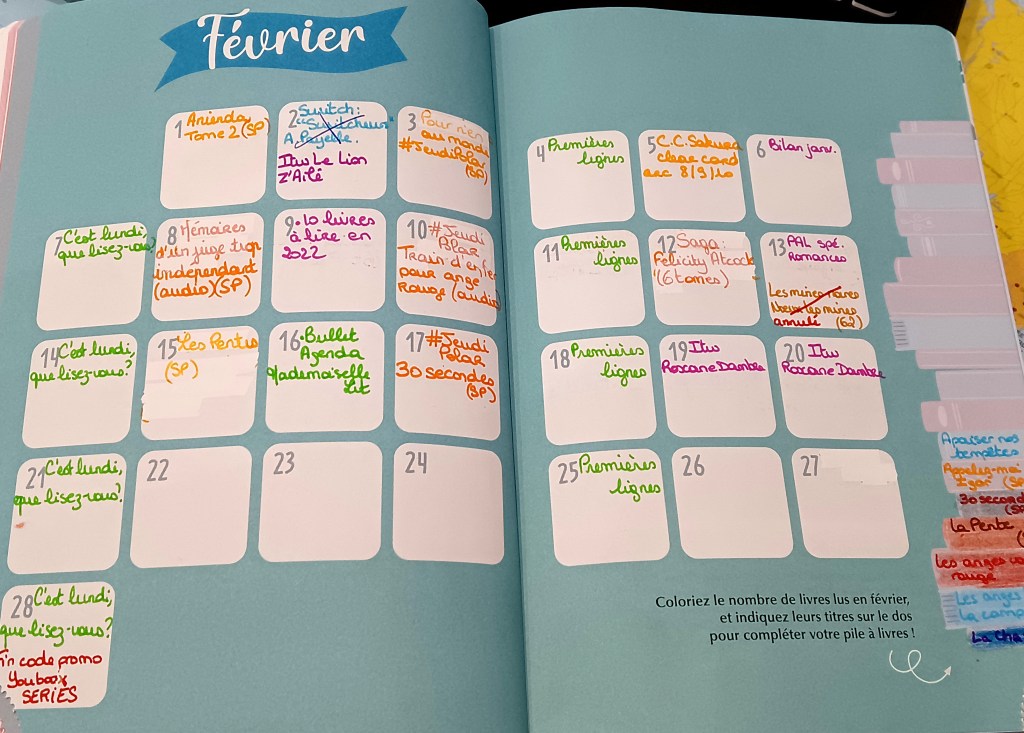 Février
1 Arienda
Tome 2 (SP)
2 Switch:
"Switcheur"
A. Payelle.
Itw Le Lion
Z'Ailé
3 Pour rien
au monde
#JeudiPolar
(SP)
4 Premières
lignes
5 C.C. Sakura
clear card
arc 8/9/10
6 Bilan janv.
7 C'est lundi,
que lisez-vous?
8 Mémoires
d'un juge trop
indépendant
(audio)(SP)
9 10 livres
à lire en
2022
10 #Jeudi
Polar
Train d'enfer
pour ange
Rouge (audio)
11 Premières
lignes
12 Saga:
Felicity Atcock
(6 tomes)
13 PAL spé.
Romances
Les mines noires
les mines
annulé (62)
14 C'est lundi,
que lisez-vous?
15 Les Pentes
(SP)
16 Bullet
Agenda
Mademoiselle
Lit
17 #Jeudi
Polar
30 secondes
(SP)
18 Premières
lignes
19 Itw
Roxane Dambre
20 Itw
Roxane Dambre
21 C'est lundi,
que lisez-vous?
22
23
24
25 Premières
lignes
26
27
28 C'est lundi,
que lisez-vous?
Fin code promo
Youboox
SERIES
Coloriez le nombre de livres lus en février,
et indiquez leurs titres sur le dos
pour compléter votre pile à livres !
Apaiser nos
tempêtes
Appelez-moi
Igor (SP
30 second
(SP
La Pente
Les anges
rouge
Les anges
La camp
La Cha